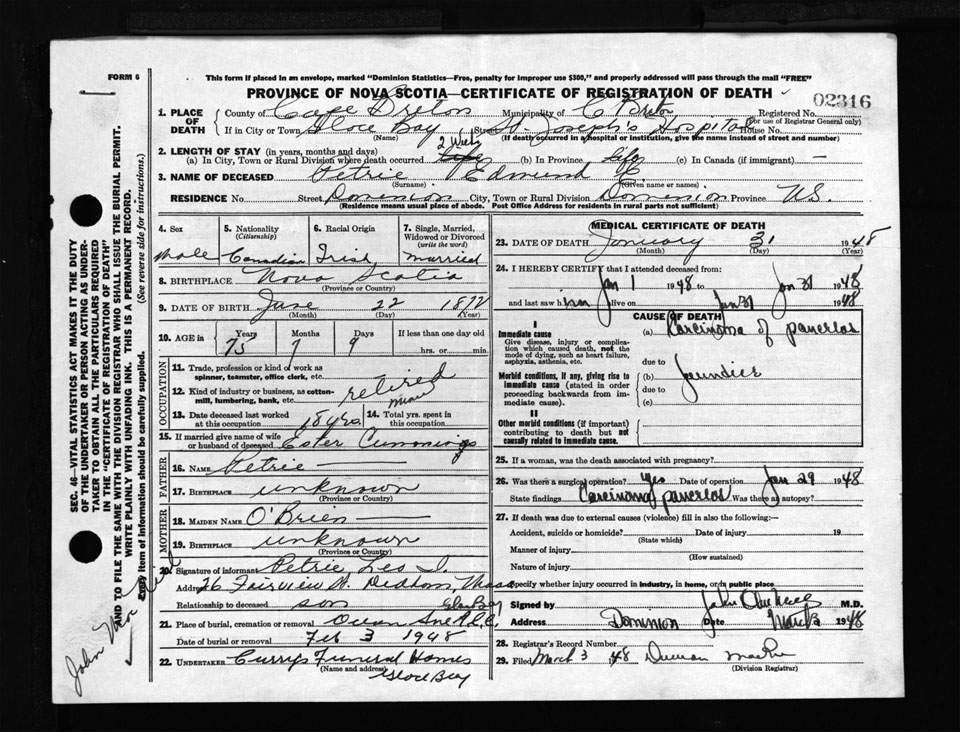 FORM 6
This form if placed in an envelope, marked "Dominion Statistics—Free, penalty for improper use $300," and properly addressed will pass through the mail "FREE"
PROVINCE OF NOVA SCOTIA—CERTIFICATE OF REGISTRATION OF DEATH
02316
SEC. 46—VITAL STATISTICS ACT MAKES IT THE DUTY
OF THE UNDERTAKER OR PERSON ACTING AS UNDER-
TAKER TO OBTAIN ALL THE PARTICULARS REQUIRED
IN THE "CERTIFICATE OF REGISTRATION OF DEATH"
AND TO FILE THE SAME WITH THE DIVISION REGISTRAR WHO SHALL ISSUE THE BURIAL PERMIT.
WRITE PLAINLY WITH UNFADING INK. THIS IS A PERMANENT RECORD.
Every item of information should be carefully supplied. (See reverse side for instructions.)
1. PLACE OF DEATH County of Cape Breton Municipality of C Breton Registered No.
(For use of Registrar General only)
If in City or Town Glace Bay Street St. Joseph's Hospital House No.
(Name) (If death occurred in a hospital or institution, give the name instead of street and number)
2. LENGTH OF STAY (in years, months and days) 2 Weeks
(a) In City, Town or Rural Division where death occurred (b) In Province life (c) In Canada (if immigrant) —
3. NAME OF DECEASED Petrie Edmund
(Surname) (Given name or names)
RESIDENCE No. Street Dominion City, Town or Rural Division Dominion Province N.S.
(Residence means usual place of abode. Post Office Address for residents in rural parts not sufficient)
4. Sex Male
5. Nationality (Citizenship) Canadian
6. Racial Origin Irish
7. Single, Married, Widowed or Divorced (write the word) married
8. BIRTHPLACE Nova Scotia
(Province or Country)
9. DATE OF BIRTH June 22 1872
(Month) (Day) (Year)
10. AGE in Years 75 Months 7 Days 9 If less than one day hrs. or min.
OCCUPATION
11. Trade, profession or kind of work as spinner, teamster, office clerk, etc.
12. Kind of industry or business, as cotton-mill, lumbering, bank, etc. retired miner
13. Date deceased last worked at this occupation 18 yrs. 14. Total yrs. spent in this occupation
15. If married give name of wife or husband of deceased Ester Cummings
FATHER
16. NAME Petrie —
17. BIRTHPLACE unknown
(Province or Country)
MOTHER
18. MAIDEN NAME O'Brien —
19. BIRTHPLACE unknown
(Province or Country)
20. Signature of informant Petrie, Leo J.
Address 26 Fairview St. Dedham, Mass
Relationship to deceased son
21. Place of burial, cremation or removal Glace Bay
Date of burial or removal Feb 3 1948
22. UNDERTAKER Curry's Funeral Homes
(Name and address)
Glace Bay
MEDICAL CERTIFICATE OF DEATH
23. DATE OF DEATH January 31 1948
(Month) (Day) (Year)
24. I HEREBY CERTIFY that I attended deceased from:
Jan 1 1948 to Jan 31 1948
and last saw him alive on Jan 31 1948
CAUSE OF DEATH
I
Immediate cause (a) Karcinoma of pancrias
Give disease, injury or complica-
tion which caused death, not the
mode of dying, such as heart failure,
asphyxia, asthenia, etc.
due to
Morbid conditions, if any, giving rise to (b) Jaundice
immediate cause (stated in order due to
proceeding backwards from im-
mediate cause). (c)
II
Other morbid conditions (if important)
contributing to death but not
causally related to immediate cause.
25. If a woman, was the death associated with pregnancy?
26. Was there a surgical operation? yes Date of operation Jan 29 1948
State findings Carcinoma pancrias Was there an autopsy?
27. If death was due to external causes (violence) fill in also the following:—
Accident, suicide or homicide? Date of injury 19
(State which)
Manner of injury
(How sustained)
Nature of injury
Specify whether injury occurred in industry, in home, or in public place
Signed by John M.D.
Address Dominion Date March 1948
28. Registrar's Record Number
29. Filed March 3 1948 Duncan
(Division Registrar)
John